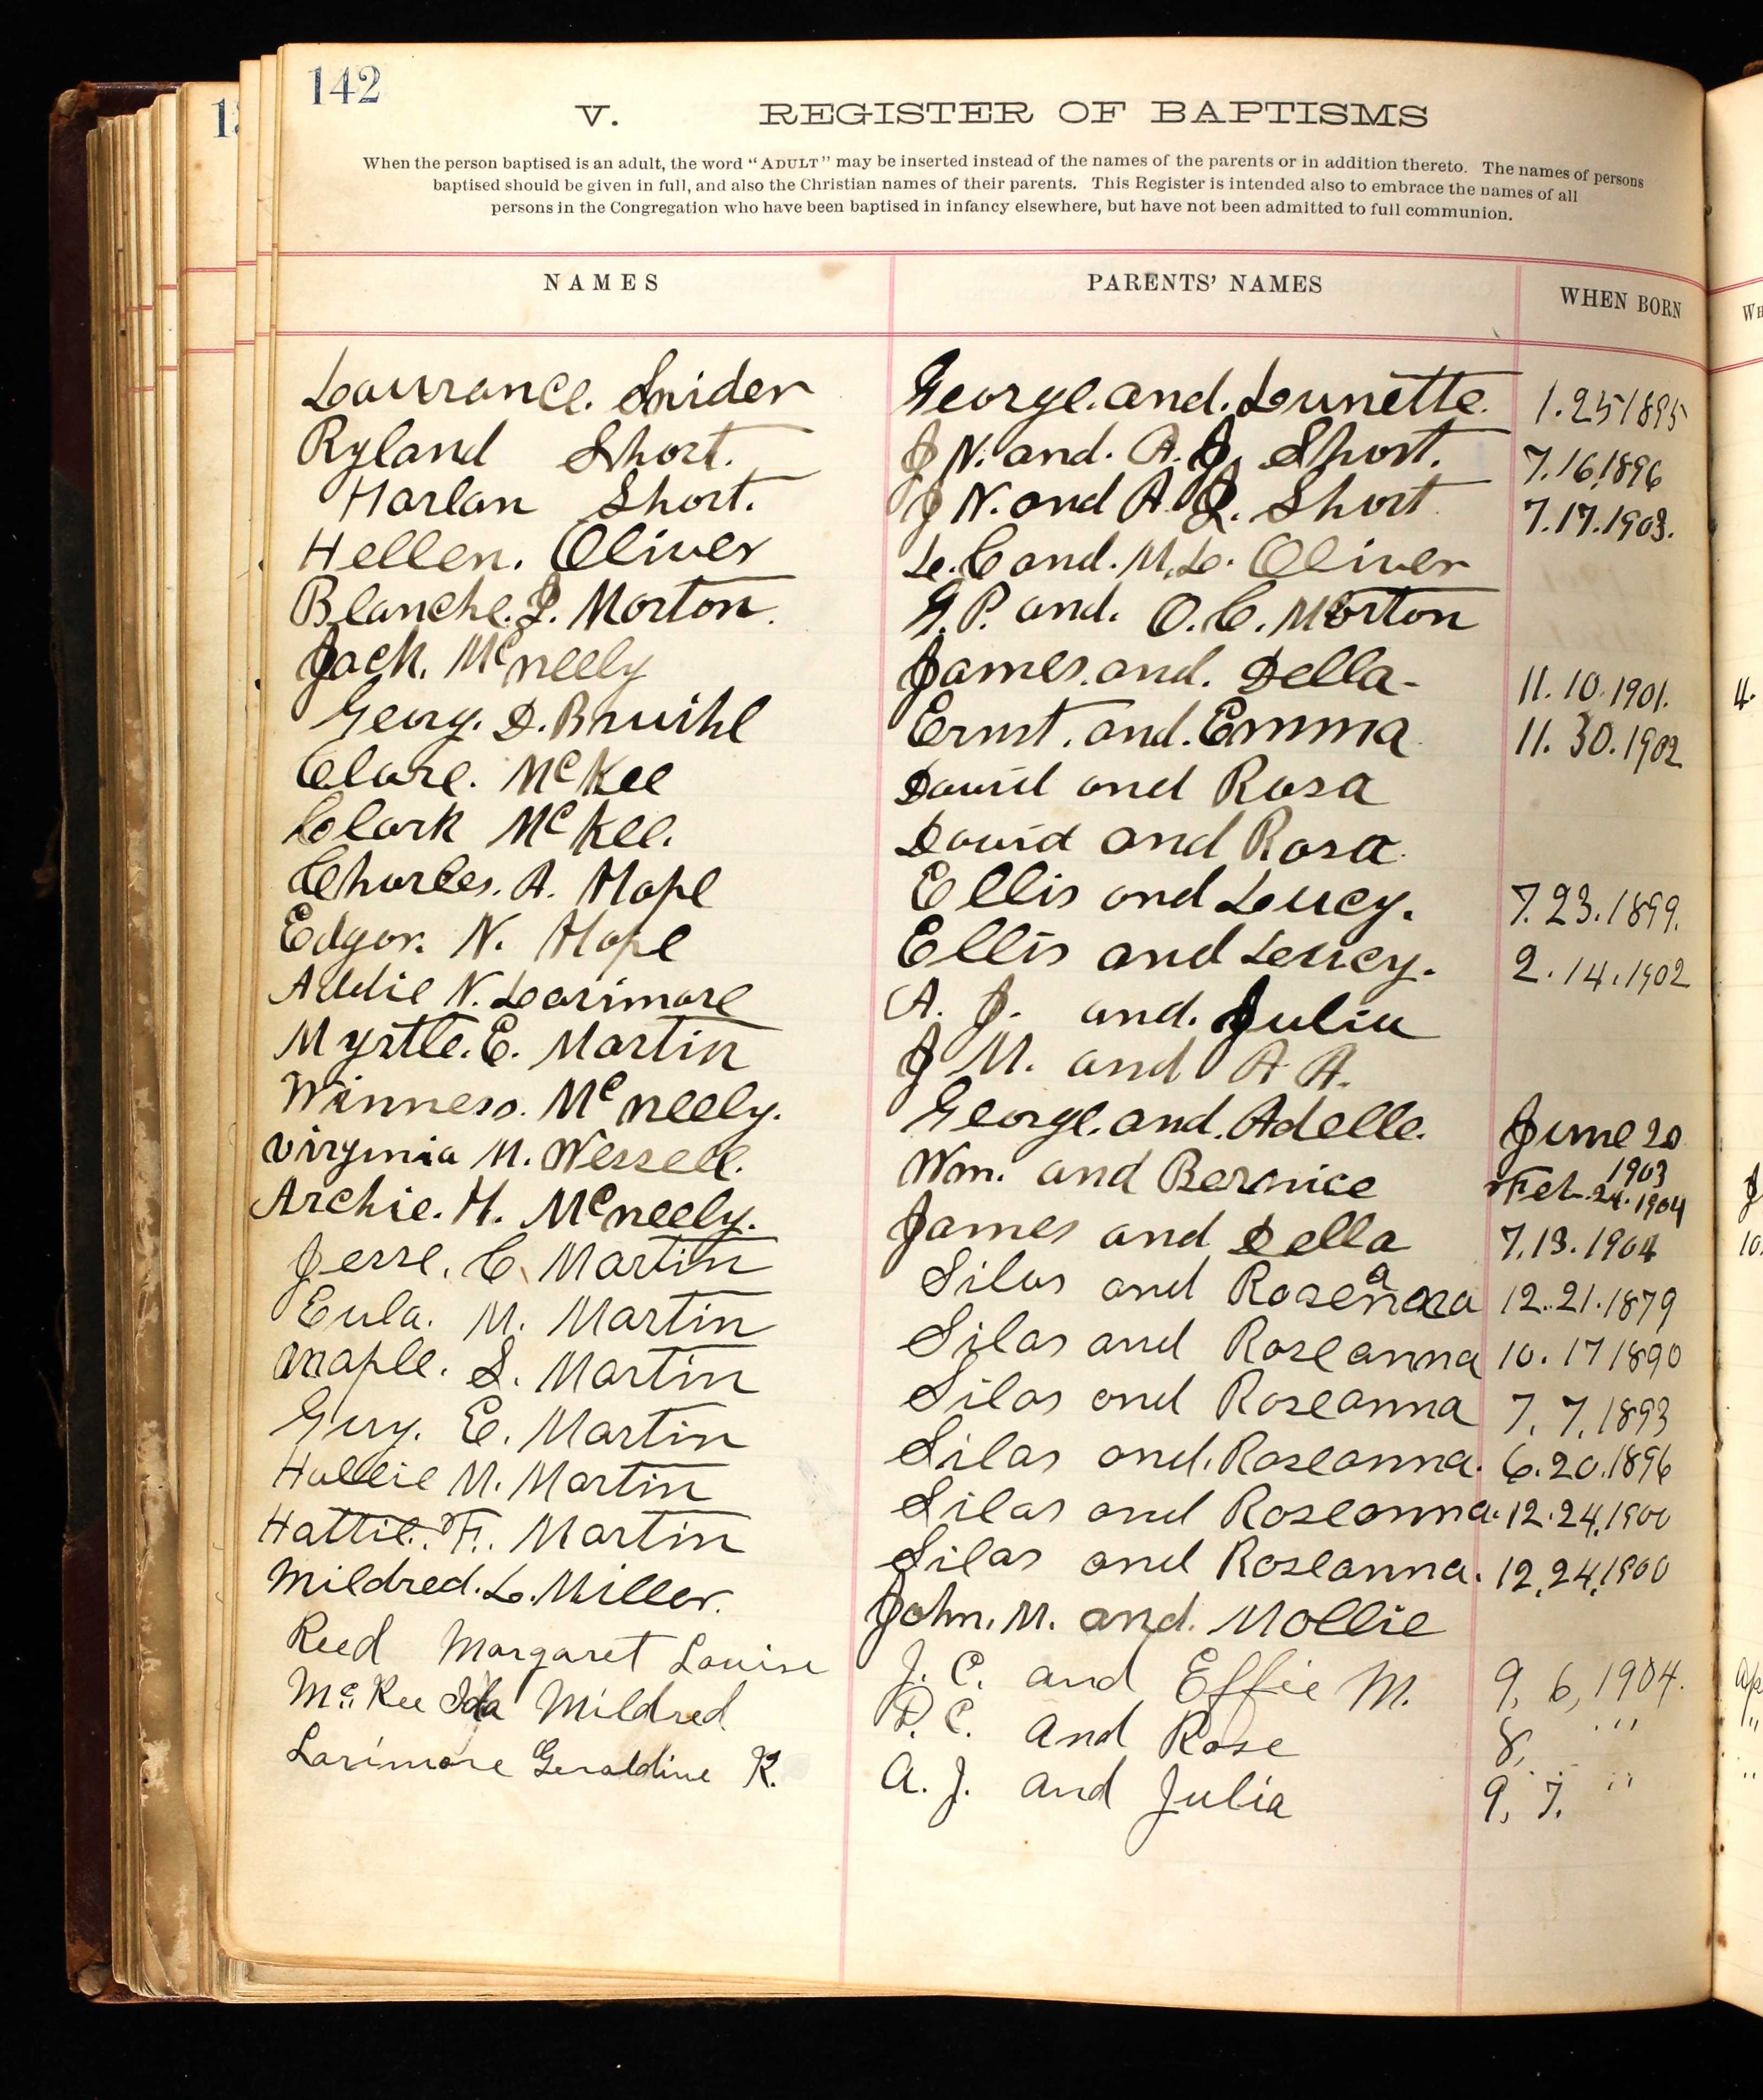 142
V. REGISTER OF BAPTISMS
When the person baptised is an adult, the word "ADULT" may be inserted instead of the names of the parents or in addition thereto. The names of persons
baptised should be given in full, and also the Christian names of their parents. This Register is intended also to embrace the names of all
persons in the Congregation who have been baptised in infancy elsewhere, but have not been admitted to full communion.
NAMES PARENTS' NAMES WHEN BORN
Laurrance. Snider George. and. Lunette. 1.25 1895
Ryland Short. J N. and. A. J. Short. 7.16.1896
Harlan Short. J N. and A. J. Short 7.17.1903.
Hellen. Oliver L. C and. M. L. Oliver
Blanche. L. Morton. G. P. and. O. C. Morton
Jack. McNeely James. and. Della- 11. 10. 1901. 4.
Georg. D. Bruihl Ernst. and. Emma 11. 30. 1902
Clare. McKee David and Rosa
Clark McKee. David and Rosa.
Charles. A. Hope Ellis and Lucy. 7. 23. 1899.
Edgar. N. Hope Ellis and Lucy. 2. 14. 1902
Addie N. Larimore A. J. and. Julia
Myrtle. E. Martin J M. and A A.
Winness. McNeely. George. and. Adelle. June 20 1903
Virginia M. Wessell. Wm. and Bernice Feb. 24. 1904
Archie. H. McNeely. James and Della 7.13. 1904 10.
Jesse. C. Martin Silas and Roseanna 12. 21. 1879
Eula. M. Martin Silas and Roseanna 10. 17 1890
Maple. S. Martin Silas and Roseanna 7. 7. 1893
Guy. E. Martin Silas and. Roseanna. 6. 20. 1896
Hallie M. Martin Silas and Roseanna. 12. 24. 1900
Hattie. F. Martin Silas and Roseanna. 12. 24. 1900
Mildred. L. Miller. John. M. and. Mollie
Reed Margaret Louise J. C. and Effie M. 9, 6, 1904.
McKee Ida Mildred D. C. and Rose 8, "
Larimore Geraldine K. A. J. and Julia 9, 7. "